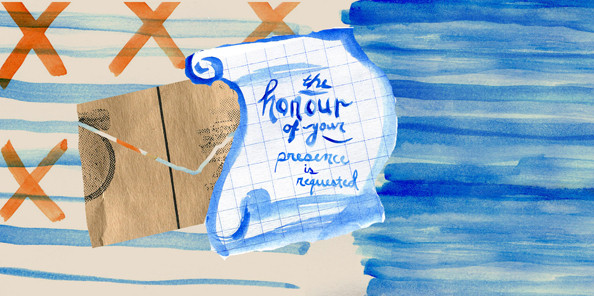 the
honour
of your
presence
is
requested